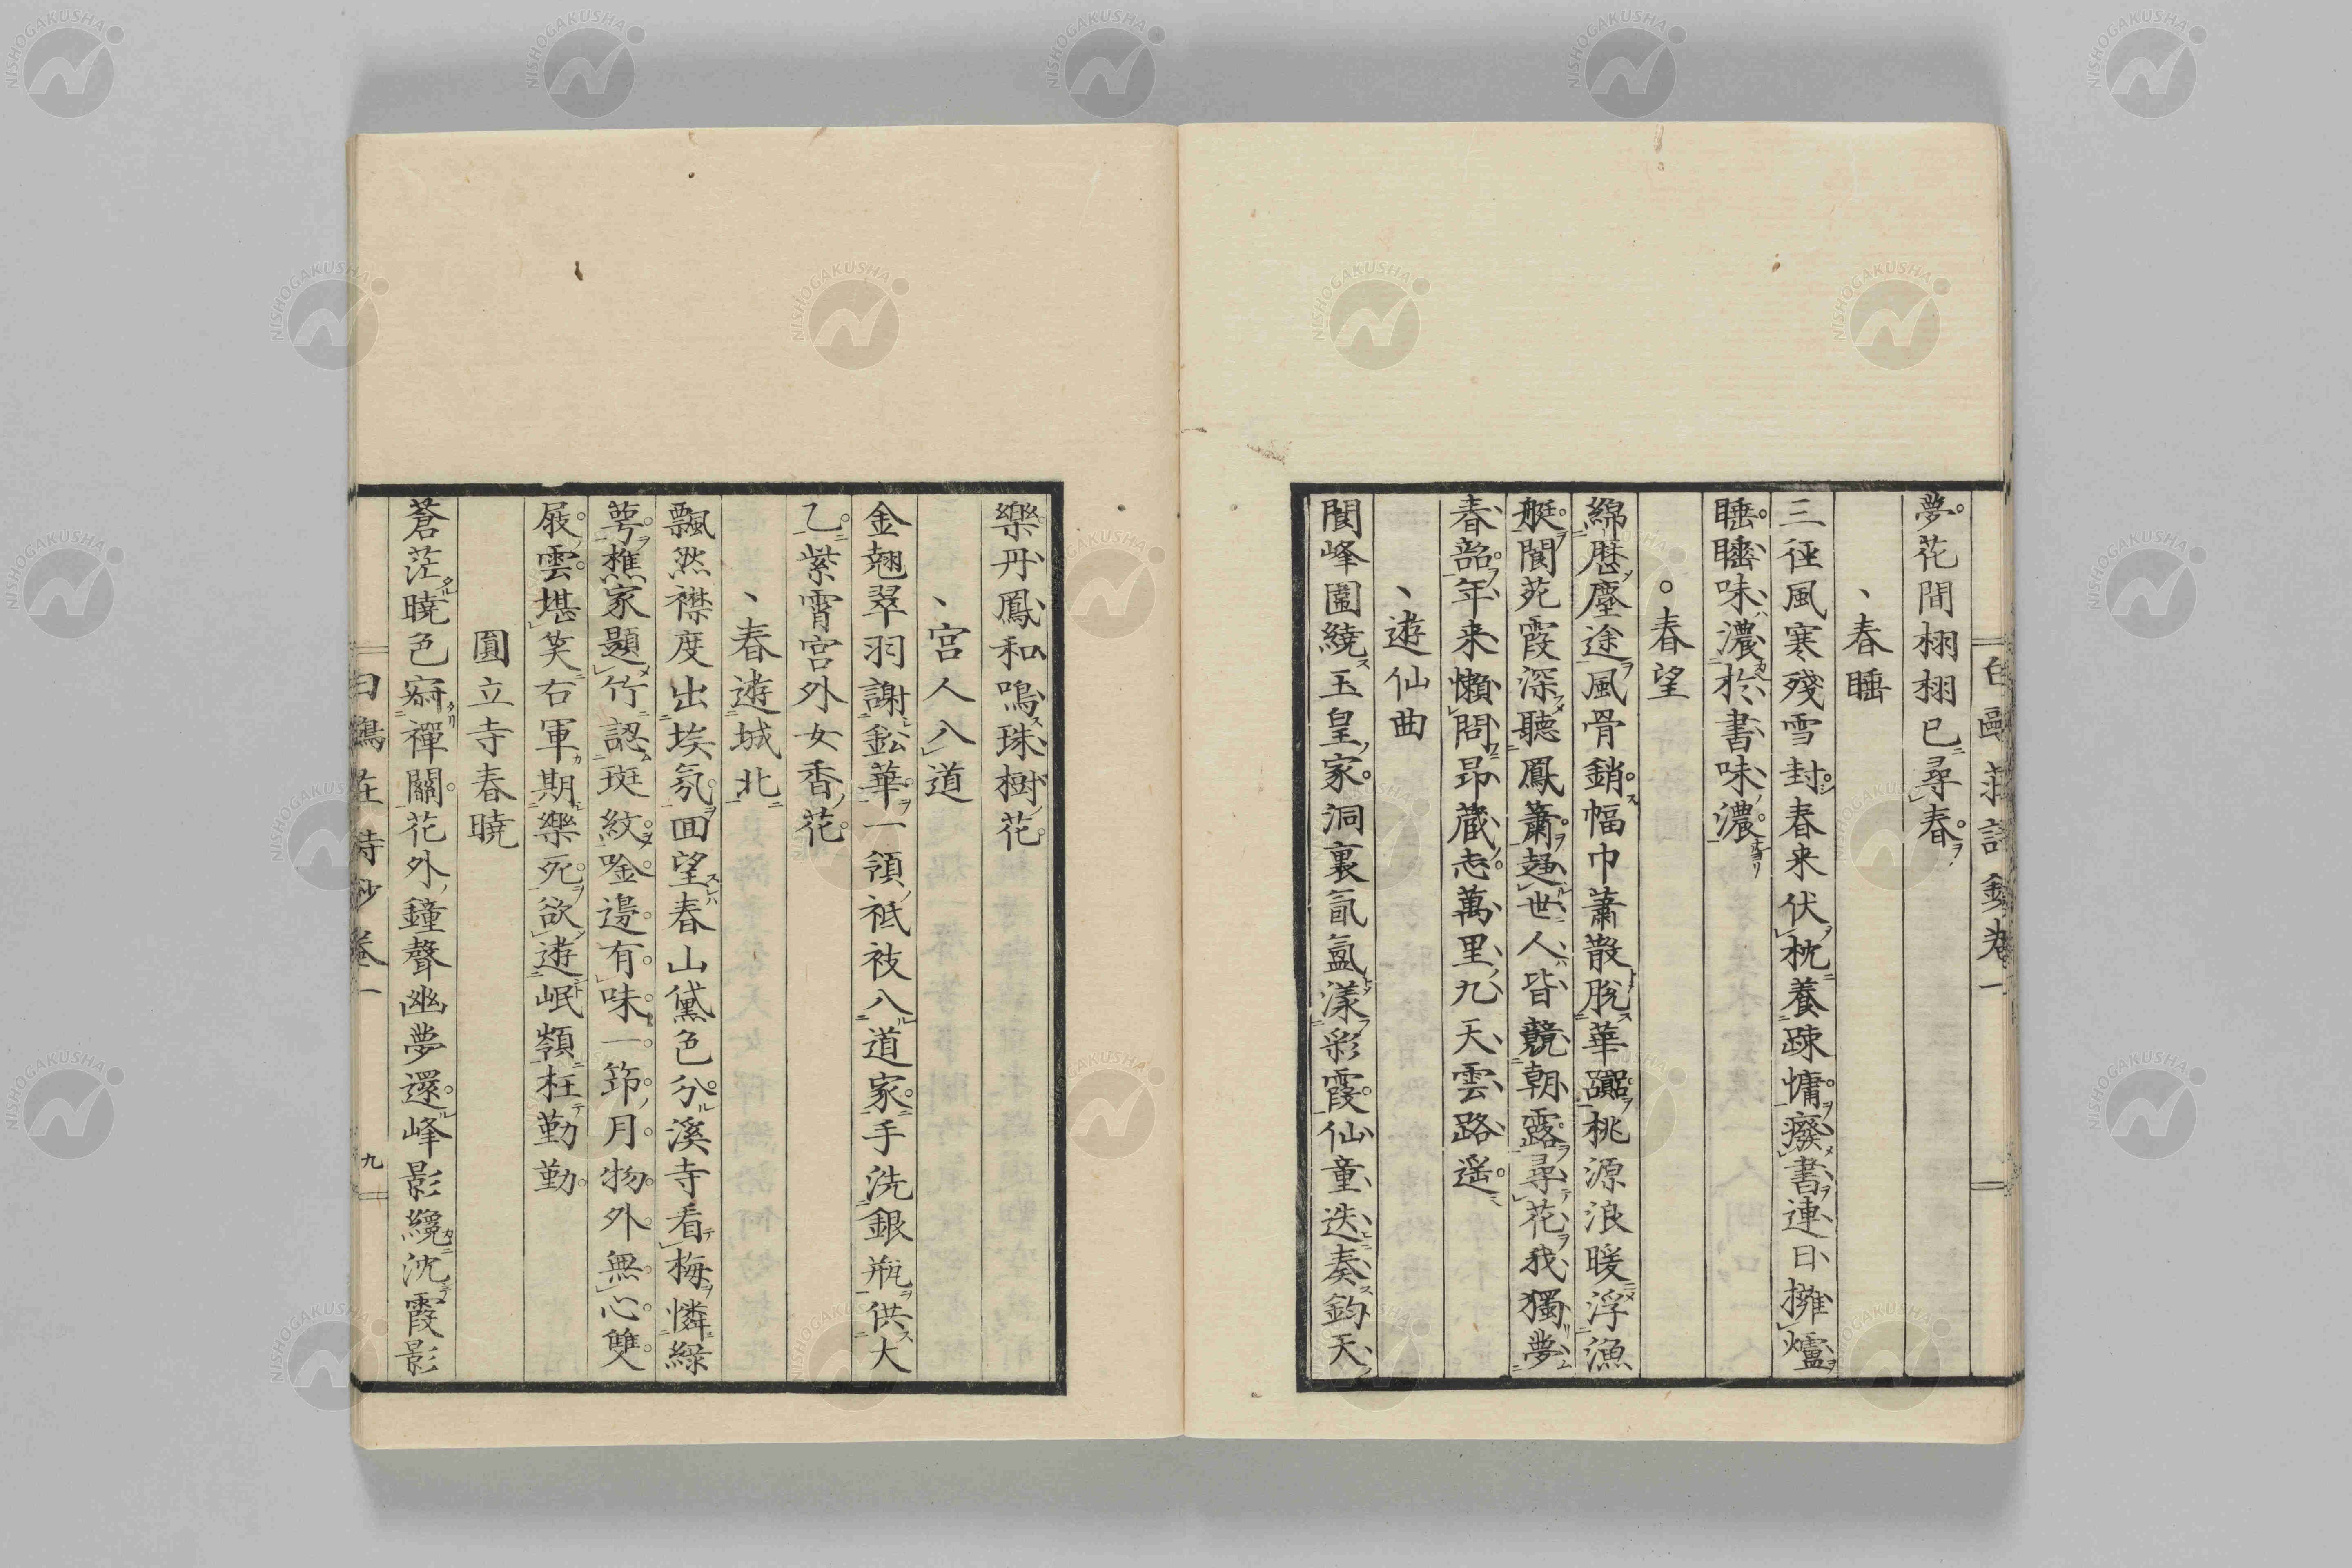 夢花間栩栩已尋春
春睡
三徑風寒殘雪封春来伏枕養踈慵癈書連日擁爐
睡睡味濃於書味濃
春望
綿歴塵途風骨銷幅巾蕭散脫華貂桃源浪暖浮漁
艇閬苑霞深聽鳳簫趍世人皆競朝露尋花我獨夢
春韶年来懶問昂藏志萬里九天雲路遥
遊仙曲
閬峰園繞玉皇家洞裏氤氳漾彩霞仙童迭奏鈞天
樂丹鳳和鳴珠樹花
宮人入道
金翹翠羽謝鉛華一領衹衱入道家手洗銀瓶供大
乙紫霄宮外女香花
春遊城北
飄然襟度出埃氛回望春山黛色分溪寺看梅憐綠
萼樵家題竹認斑紋唫邊有味一笻月物外無心雙
屐雲堪笑右軍期樂死欲遊岷嶺枉勤勤
圓立寺春曉
蒼茫曉色窮禪關花外鐘聲幽夢還峰影纔沈霞影
九